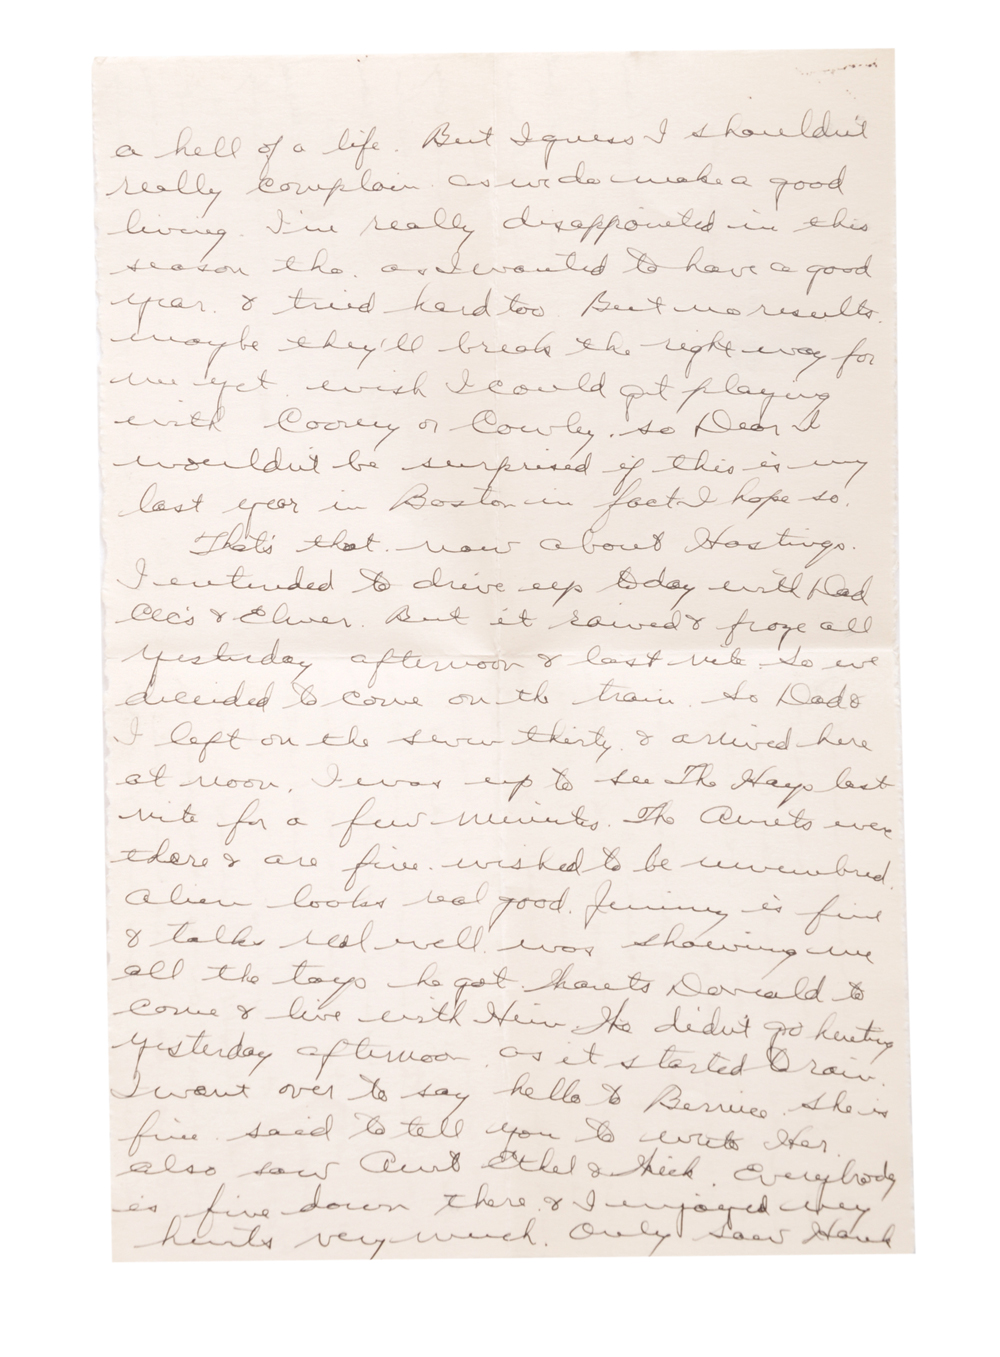 a hell of a life. But I guess I shouldn't
really complain as we do make a good
living. I'm really disappointed in this
season tho. as I wanted to have a good
year. & tried hard too. But no results.
maybe they'll break the right way for
me yet. wish I could get playing
with Cooney or Cowley. so Dear I
wouldn't be surprised if this is my
last year in Boston in fact I hope so.
That's that. now about Hastings.
I intended to drive up today with Dad
Cec's & Elmer. But it rained & froze all
yesterday afternoon & last nite. So we
decided to come on the train. So Dad &
I left on the seven thirty. & arrived here
at noon. I was up to see The Hays last
nite for a few minutes. The Aunts were
there & are fine. wished to be remembred.
looks real good. Jimmy is fine
& talks real well. was showing me
all the toys he got. Wants Donald to
come & live with Him. He didn't go hunting
yesterday afternoon. as it started to rain.
I went over to say hello to Bernice. She is
fine. said to tell you to write Her.
also saw Aunt Ethel & Hick. Everybody
is fine down there. & I enjoyed my
hunts very much. Only saw Hank